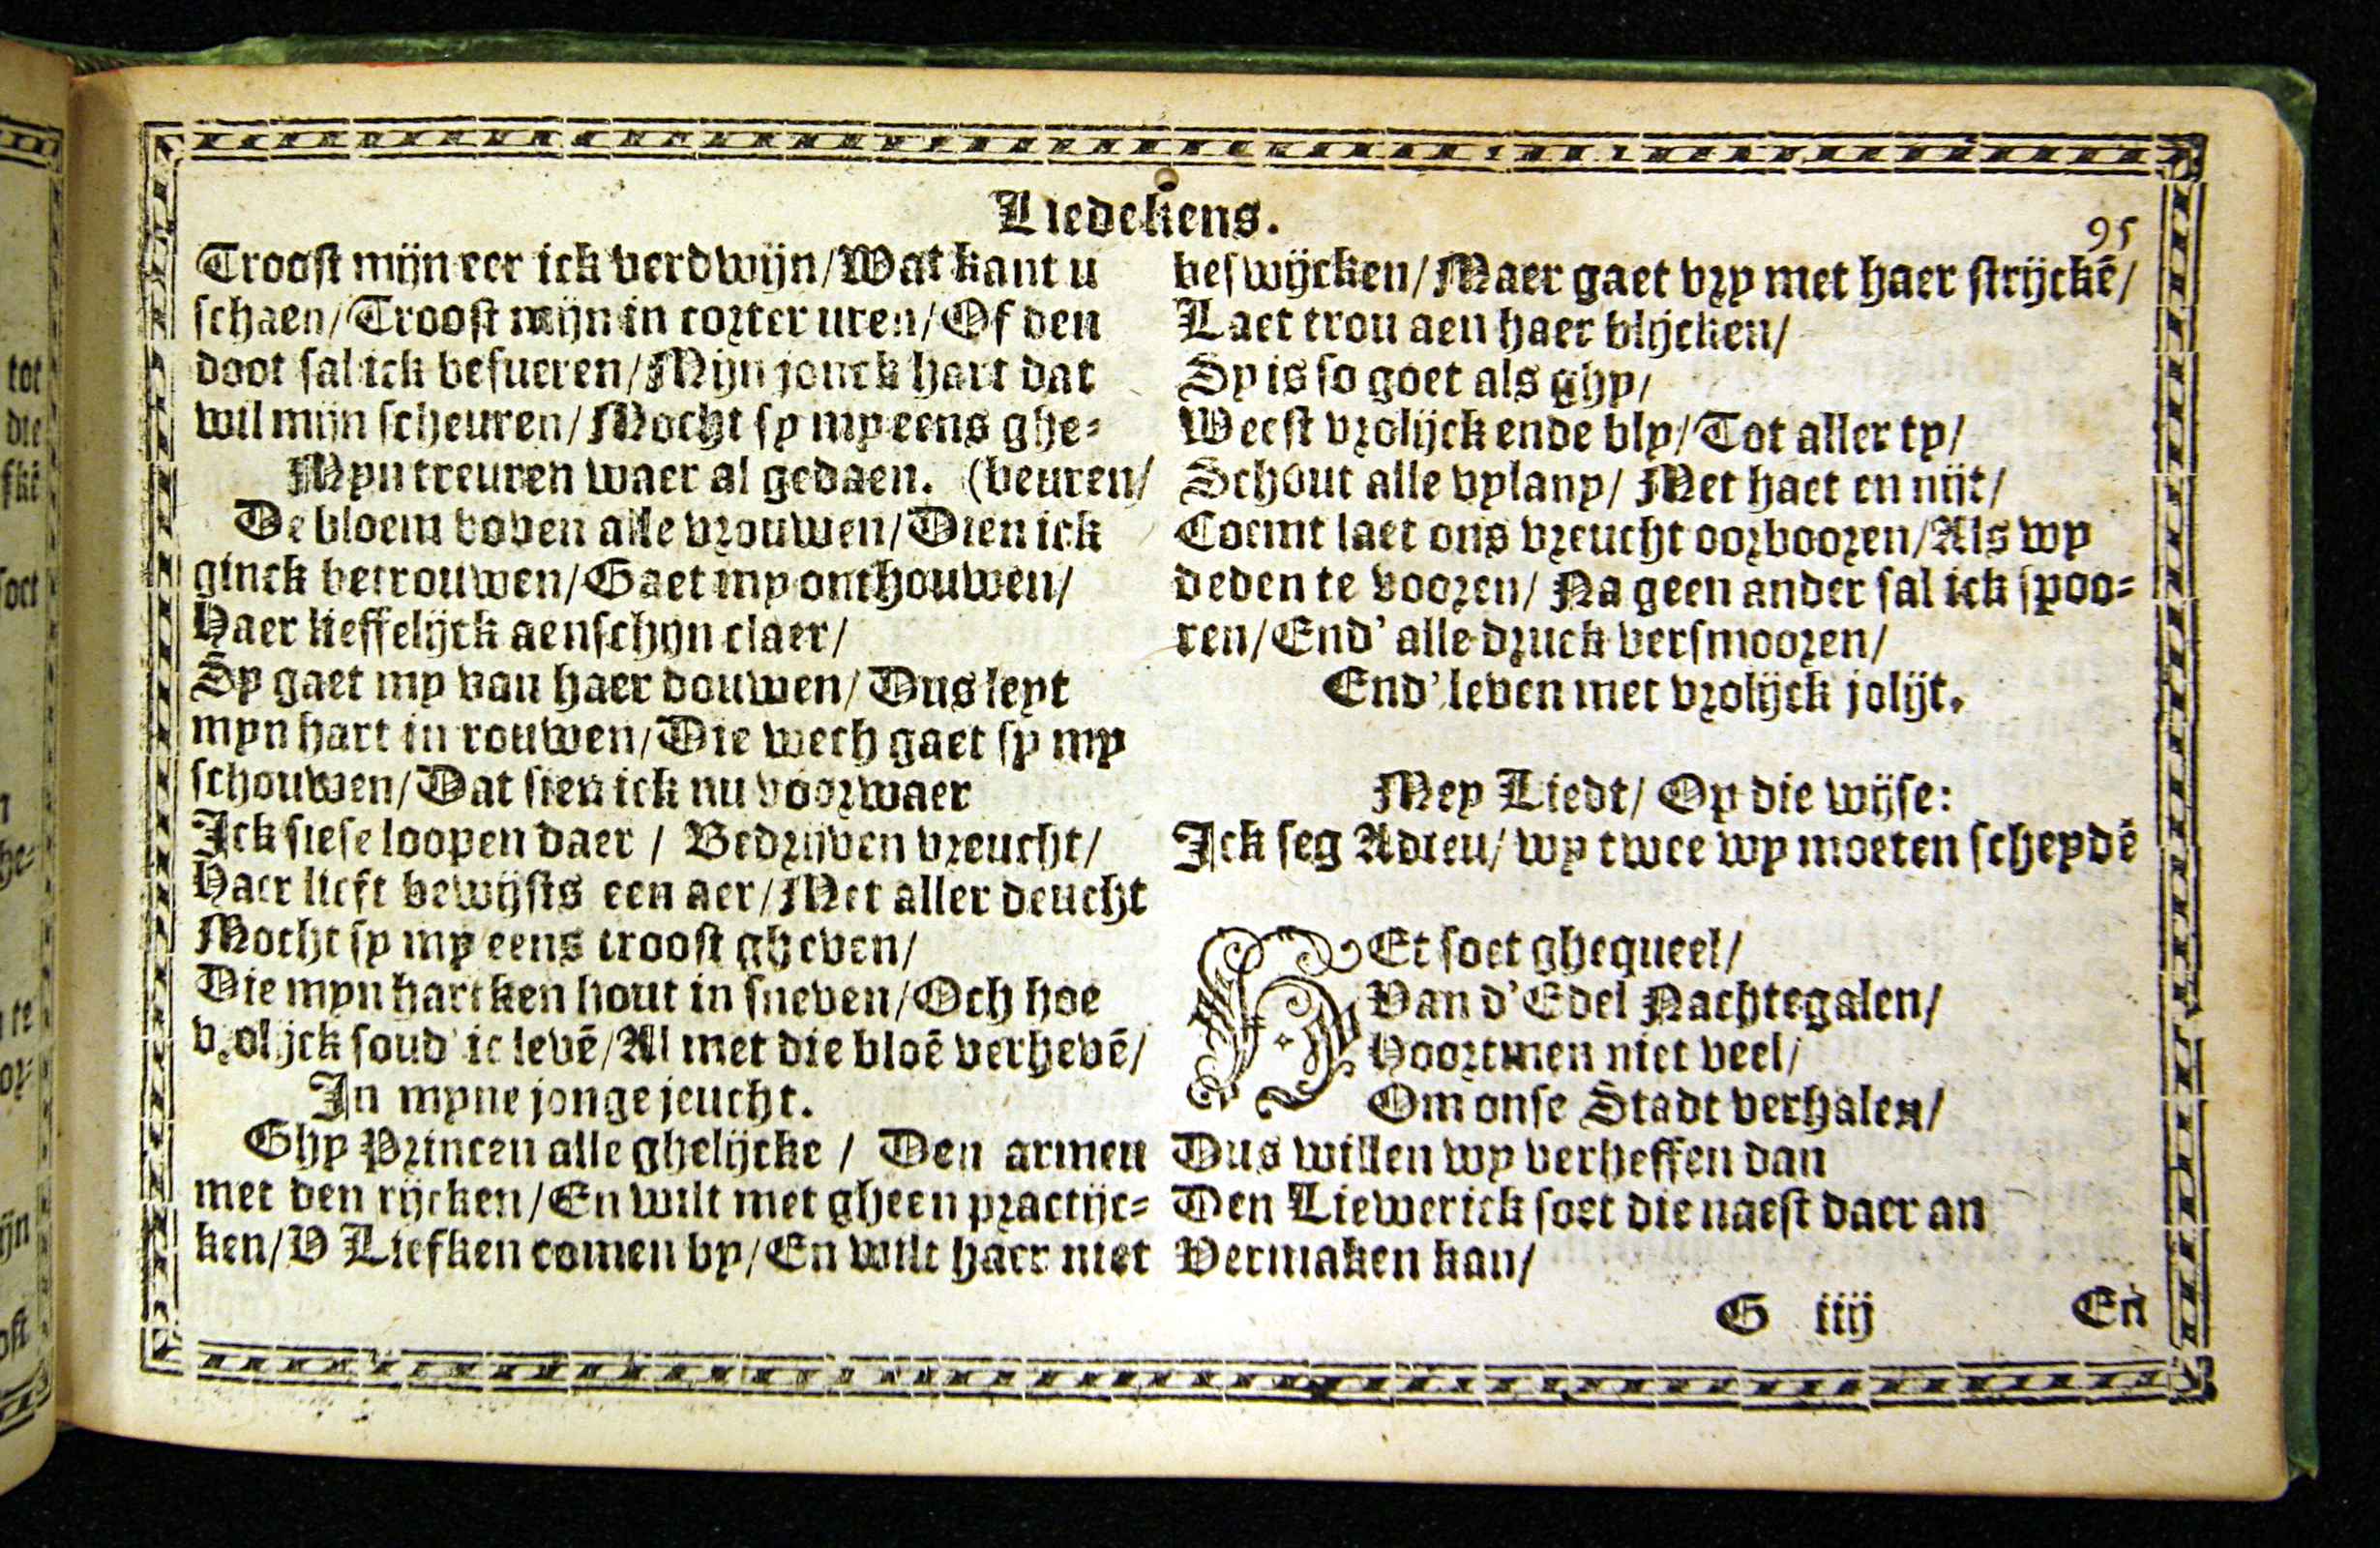 Liedekens.
95
Troost mijn eer ick verdwijn/Wat kant u
schaen/Troost mijn in corter uren/Of den
doot sal ick besueren/Mijn jonck hart dat
wil mijn scheuren/Mocht sy my eens ghe-
Myn treuren waer al gedaen. (beuren/
De bloem boven alle vrouwen/Dien ick
ginck betrouwen/Gaet my onthouwen/
Haer lieffelijck aenschijn claer/
Sy gaet my van haer douwen/Dus leyt
myn hart in rouwen/Die wech gaet sy my
schouwen/Dat sien ick nu voorwaer
Ick siese loopen daer / Bedrijven vreucht/
Haer lieft bewijsts een aer/Met aller deucht
Mocht sy my eens troost gheven/
Die myn hartken hout in sneven/Och hoe
vrolijck soud' ic levē/Al met die bloē verhevē/
In myne jonge jeucht.
Ghy Princen alle ghelijcke / Den armen
met den rijcken/En wilt met gheen practijc-
ken/V Liefken comen by/En wilt haer niet
beswijcken/Maer gaet vry met haer strijckē/
Laet trou aen haer blijcken/
Sy is so goet als ghy/
Weest vrolijck ende bly/Tot aller ty/
Schout alle vylany/ Met haet en nijt/
Coemt laet ons vreucht oorbooren/Als wy
deden te vooren/ Na geen ander sal ick spoo-
ren/End' alle druck versmooren/
End' leven met vrolijck jolijt.
Mey Liedt/ Op die wijse:
Ick seg Adieu/ wy twee wy moeten scheydē
HEt soet ghequeel/
Van d'Edel Nachtegalen/
Hoortmen niet veel/
Om onse Stadt verhalen/
Dus willen wy verheffen dan
Den Liewerick soet die naest daer an
Vermaken kan/
G iiij
En
tot
die
soet
ghe-
te
ijn